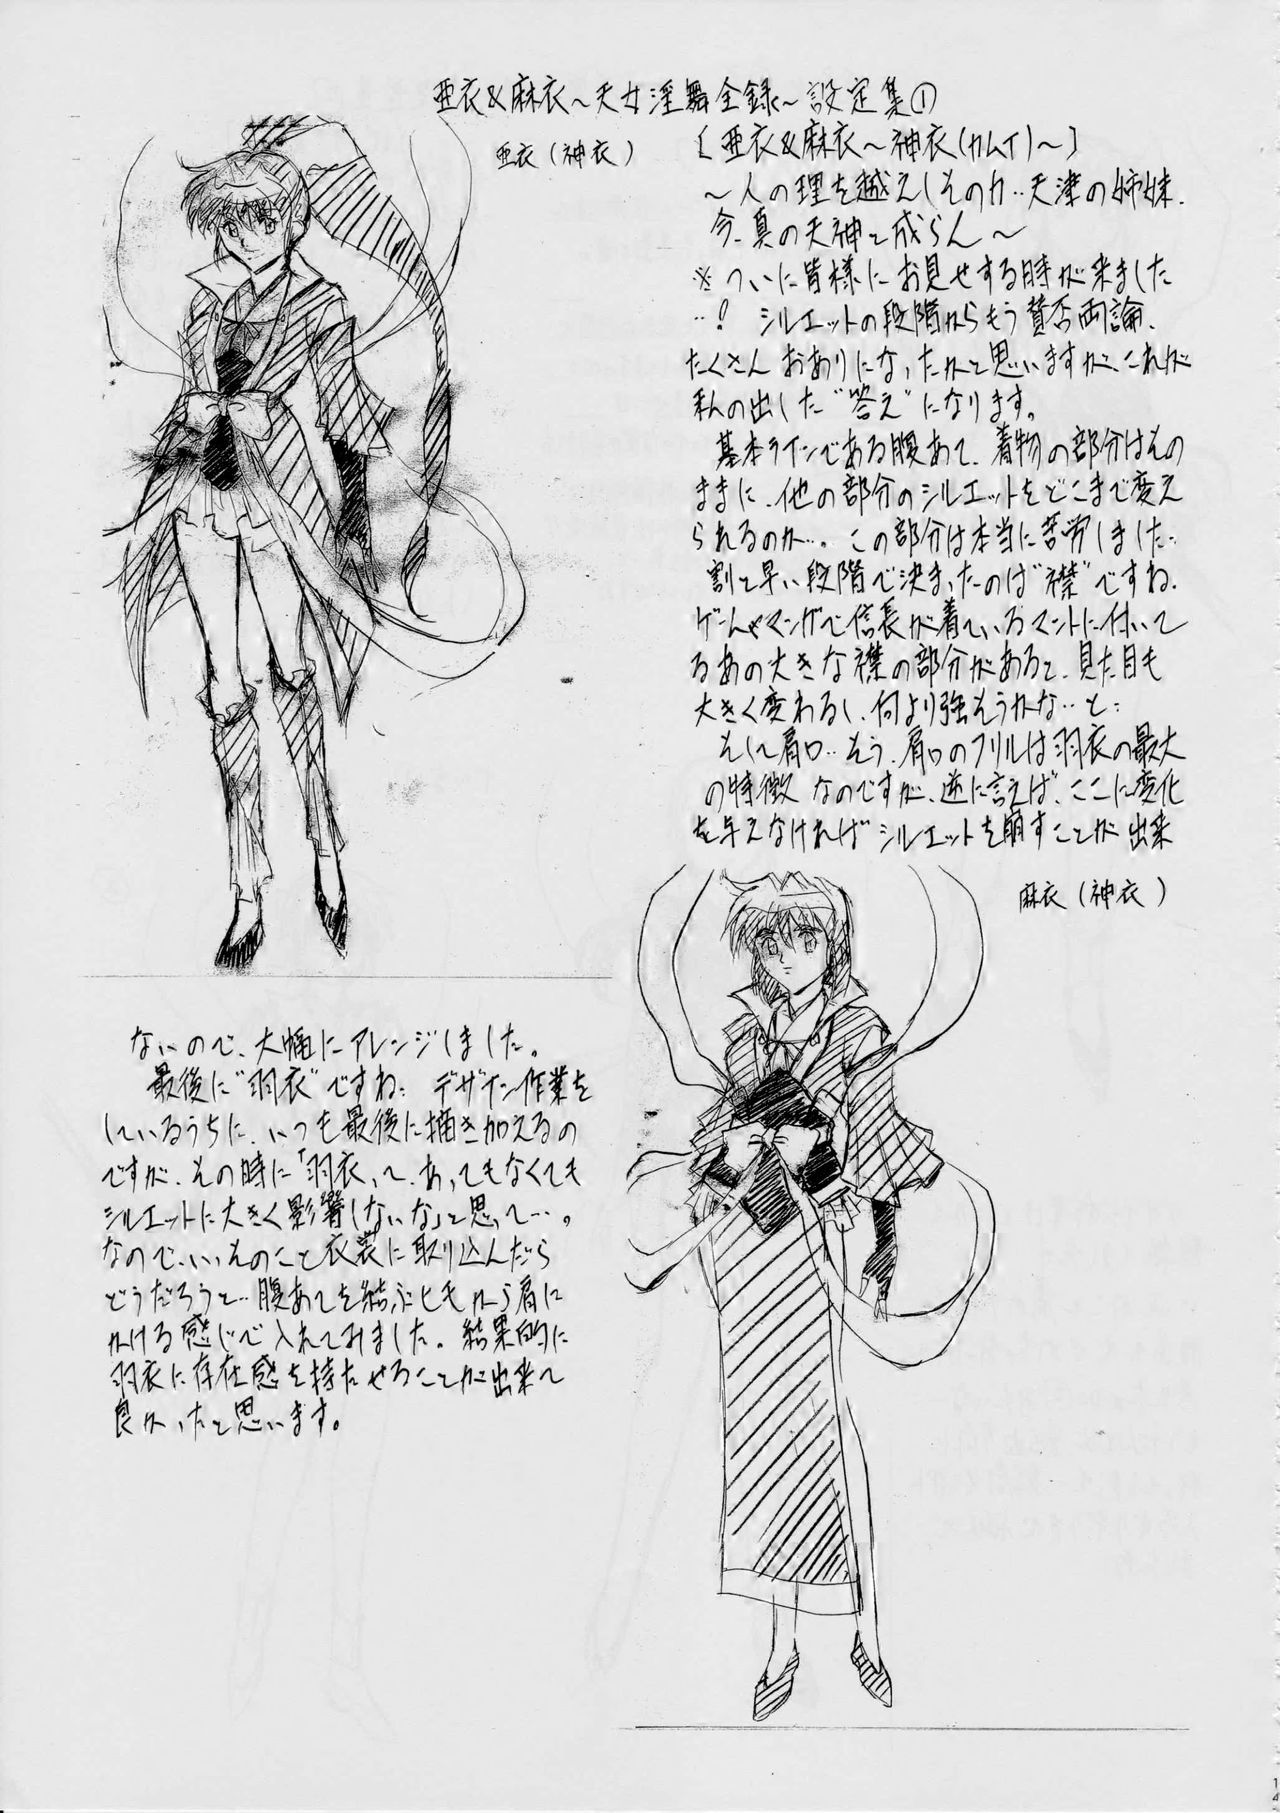 亜衣&麻衣～天女淫舞全録～設定集①
亜衣(神衣)
[亜衣&麻衣～神衣(カムイ)～]
～人の理を越えしその力‥天津の姉妹、
今、真の天神と成らん～
※ついに皆様にお見せする時が来ました
‥! シルエットの段階からもう賛否両論、
たくさんおありになったかと思いますが、これが
私の出した“答え”になります。
基本ラインである腹あて、着物の部分はその
ままに、他の部分のシルエットをどこまで変え
られるのか‥。この部分は本当に苦労しました‥
割と早い段階で決まったのは“襟”ですね、
ゲームやマンガで信長が着ているマントに付いて
るあの大きな襟の部分があると、見た目も
大きく変わるし、何より強そうかな‥と‥
そして肩口‥そう、肩口のフリルは羽衣の最大
の特徴なのですが、逆に言えば、ここに変化
を与えなければシルエットを崩すことが出来
麻衣(神衣)
ないので、大幅にアレンジしました。
最後に“羽衣”ですね‥デザイン作業を
しているうちに、いつも最後に描き加えるの
ですが、その時に「羽衣って、あってもなくても
シルエットに大きく影響しないな」と思って‥。
なので、いっそのこと衣装に取り込んだら
どうだろうと‥腹あてを結ぶヒモから肩に
かける感じで入れてみました。結果的に
羽衣に存在感を持たせることが出来て
良かったと思います。
14